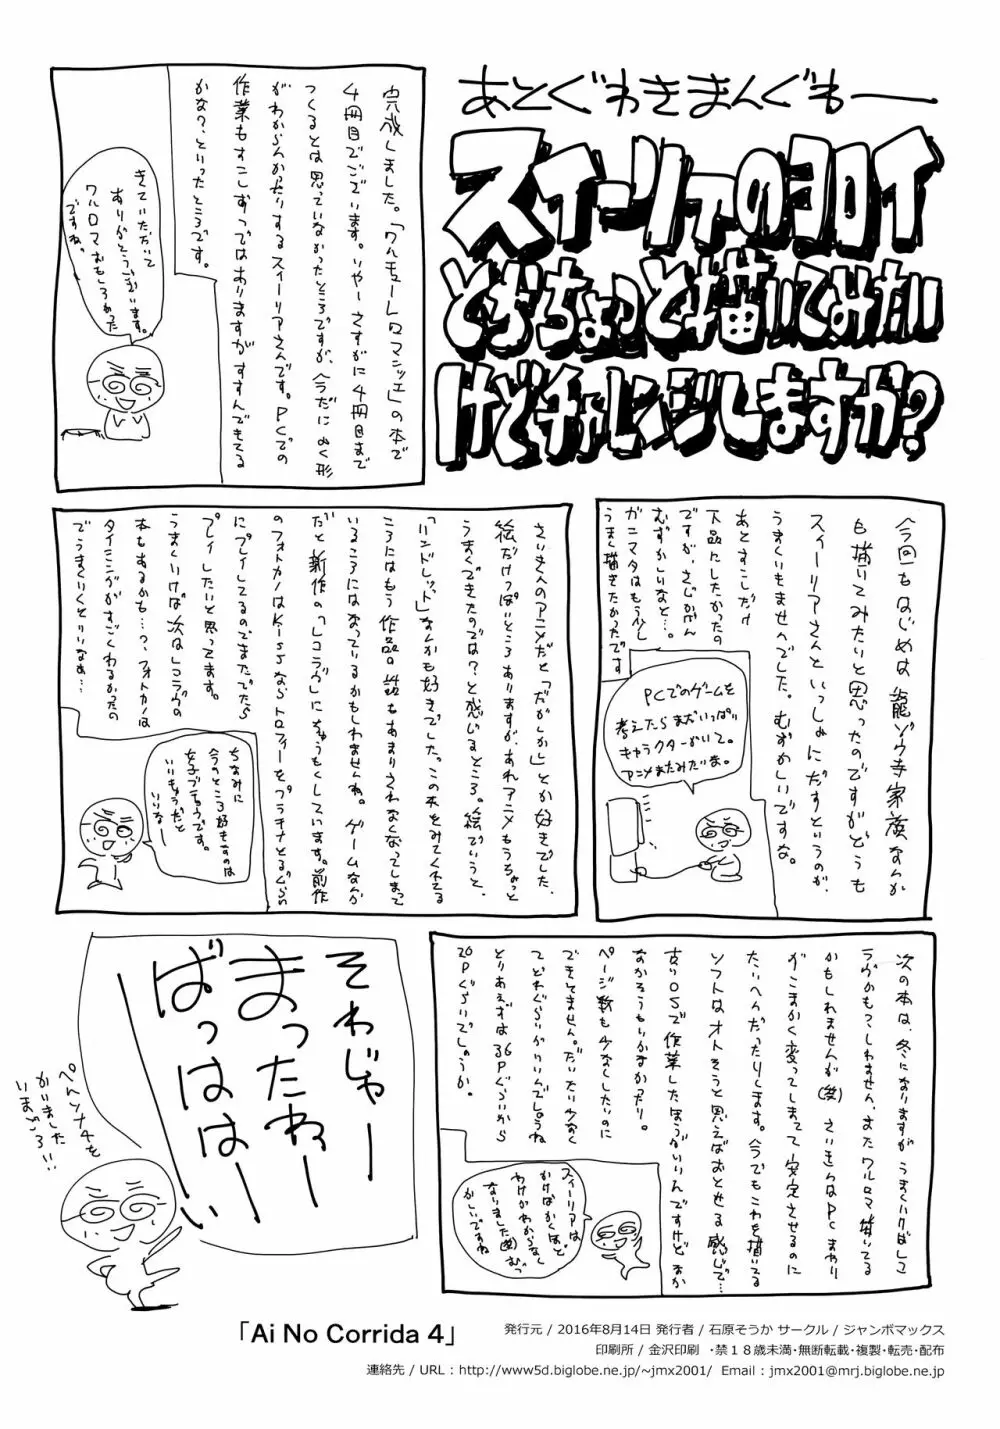 あとぐわきまんぐわー
スイーリアのヨロイ
とかちょっと描いてみたい
けどチャレンジしますか?
完成しました。「ワルキューレロマンツェ」の本で
4冊目でございます。いやーさすがに4冊目まで
つくるとは思っていなかったところですが、今だにぬく形
がわからんかったりするスィーリアさんです。PCでの
作業もすこしずつではありますがすすんでもてる
かな?、といったところです。
きていただいて
ありがとうございます。
ワルロマおもしろかった
ですね。
今回もはじめは龍ゾウ寺家族なんか
も描いてみたいと思ったのですがどうも
スィーリアさんといっしょにだすというのが、
うまくいきませんでした。むずかしいですな。
あとすこしだけ
下品にしたかったの
ですが、さじかげん
むずかしいなと…。
ガニマタはもう少し
うまく描きたかったです
PCでのゲームを
考えたらまだいっぱい
キャラクターがいて。
アニメまたみたいな。
さいきんのアニメだと「だがしかし」とか好きでした。
絵だけっぽいところありますが、あれアニメもうちょっと
うまくできたのでは?と感じるところ。絵でいうと、
「ハンドレッド」なんかも好きでした。この本をみてくれてる
ころにはもう作品の話もあまりされなくなってしまって
いるころにはなっているかもしれませんね。ゲームなんか
だと新作の「レコラヴ」にちゅうもくしています。前作
のフォトカノはKissならトロフィーをプラチナとるぐらい
にプレイしてるのでまたでたら
プレイしたいと思ってます。
うまくいけば次はレコラヴの
本もあるかも…?、フォトカノは
タイミングがすごくわるかったの
でうまくいくといいなぁ…
ちなみに
今のところ好きなのは
女子プチョウです。
いいきょうだと
いいなー
次の本は、冬になりますがうまくハクばレコ
ラヴかもっしれません、またワルロマ描いてる
かもしれませんが(笑) さいきんはPCまわり
がこまかく変ってしまって安定させるのに
たいへんだったりします。今でもこれを描いてる
ソフトはオトそうと思えばおとせる感じで…
古いOSで作業したほうがいいんですけどなか
なかそうもいかずかったり。
ページ数も少なくしたいのに
できてません。だいたいわなく
てどれぐらいがいいんでしょうね
とりあえずは36Pぐらいから
20Pぐらいでしょうか。
スィーリアは
かけばかくほど
わけがわからなく
なりました(笑)むつ
かしいですね
それじゃー
まったねー
ばっははーい
ペルソナ4を
かいました
いまごろ!!
「Ai No Corrida 4」
発行元 / 2016年8月14日 発行者 / 石原そうか サークル / ジャンボマックス
印刷所 / 金沢印刷 ・禁18歳未満・無断転載・複製・転売・配布
連絡先 / URL : http://www5d.biglobe.ne.jp/~jmx2001/ Email : jmx2001@mrj.biglobe.ne.jp